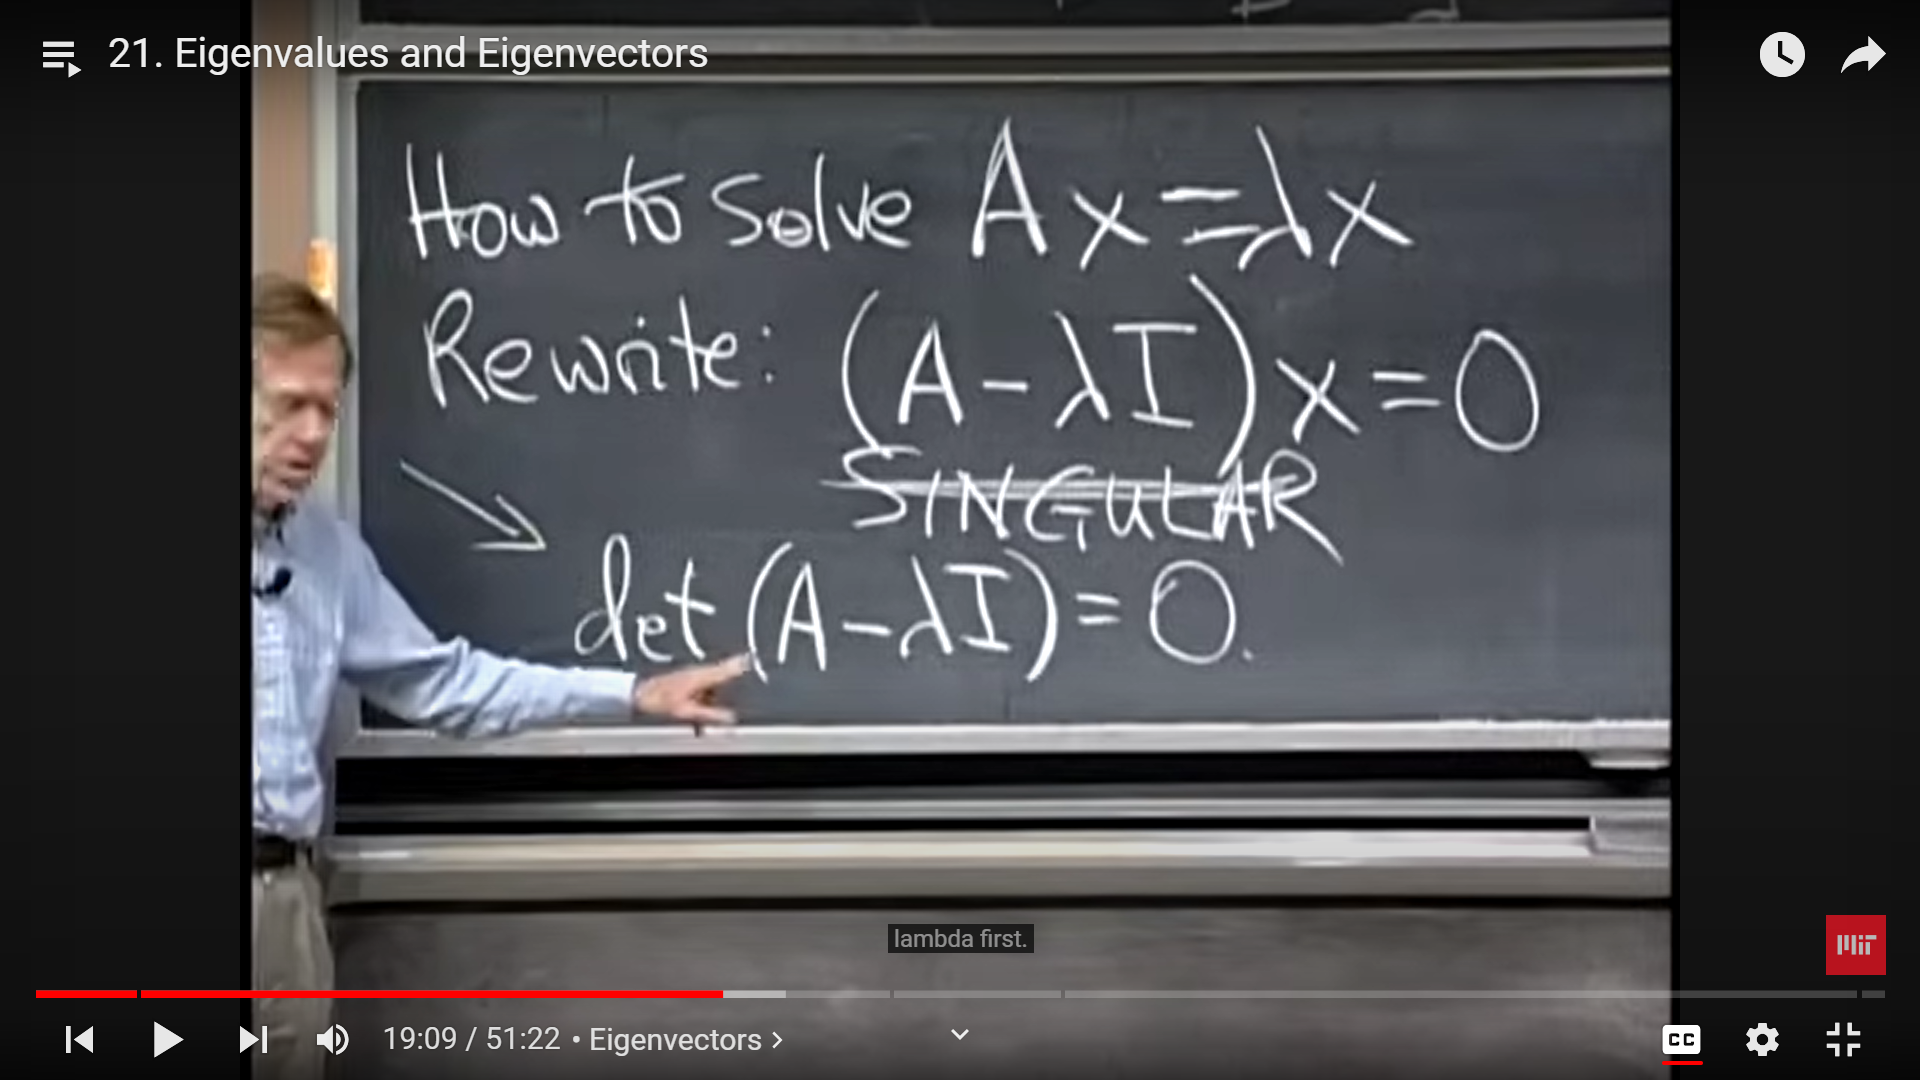 21. Eigenvalues and Eigenvectors
How to solve Ax=λx
Rewrite: (A-λI)x=0
SINGULAR
det(A-λI)=0.
lambda first.
MIT
19:09 / 51:22 • Eigenvectors >
CC